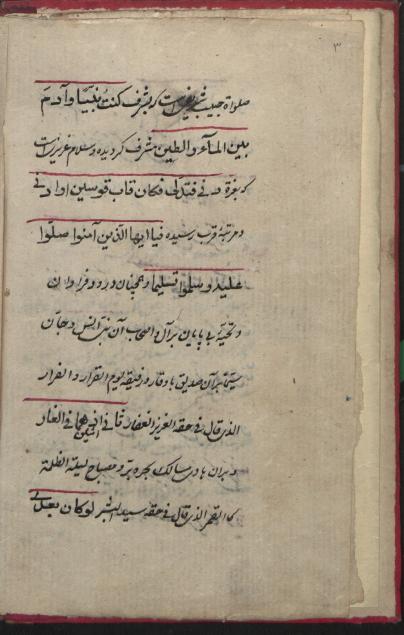 ۳
صلواة حبیب شریفی است که بشرف کنت نبیّا و آدم
بین المآء والطین مشرف کردیده وسلام عزیزی است
که بغرّة دنی فتدلی فکان قاب قوسین او ادنی
و مرتبهٔ قرب رسیده فیا ایها الذین آمنوا صلّوا
علیه وسلموا تسلیما و همچنان درود فراوان
و تحیهٔ بی پایان بر آل و اصحاب آن نبی انس و جان
سیّما بر آن صدیق با وقار و رفیقه یوم القرار والفرار
الذی قال فی حقه العزیز الغفار ثانی اثنین اذ هما فی الغار
و بران هادی مسالک بحره و بر و مصباح لیلة الظلمة
کا القمر الذی قال فی حقه سید البشر لو کان بعدی